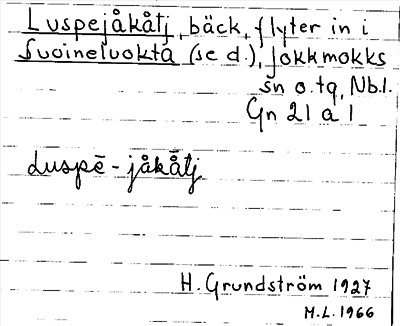 Luspejåkåtj, bäck, flyter in i
Suoineluokta (se d.), Jokkmokks
sn o. tg, Nb.l.
Gn 21 a 1
Luspē-jåkåtj
H. Grundström 1927
M.L. 1966